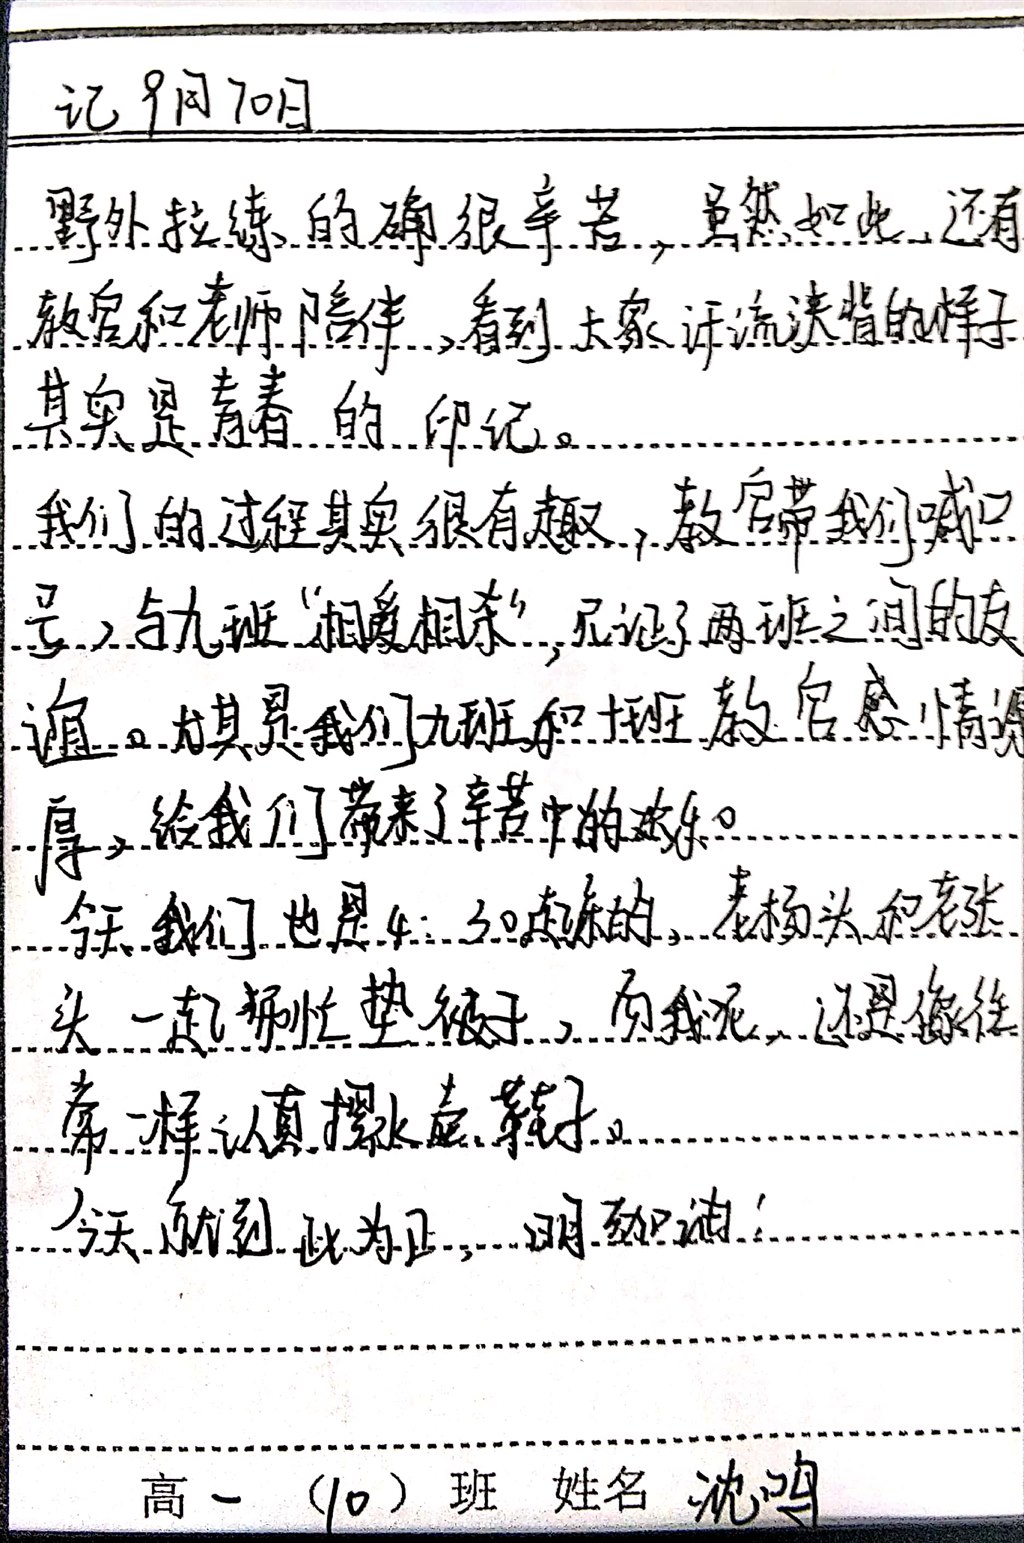 记9月10日
野外拉练的确很辛苦，虽然如此，还有
教官和老师陪伴，看到大家汗流浃背的样子
其实是青春的印记。
我们的过程其实很有趣，教官带我们喊口
号，与九班“相爱相杀”，见证了两班之间的友
谊。尤其是我们九班和十班教官感情深
厚，给我们带来了辛苦中的欢乐。
今天我们也是4：30起床的，老杨头和老张
头一起帮忙垫被子，而我呢，还是像往
常一样认真摆水壶、鞋子。
今天就到此为止，明天继续！
高一（10）班 姓名 沈鸣